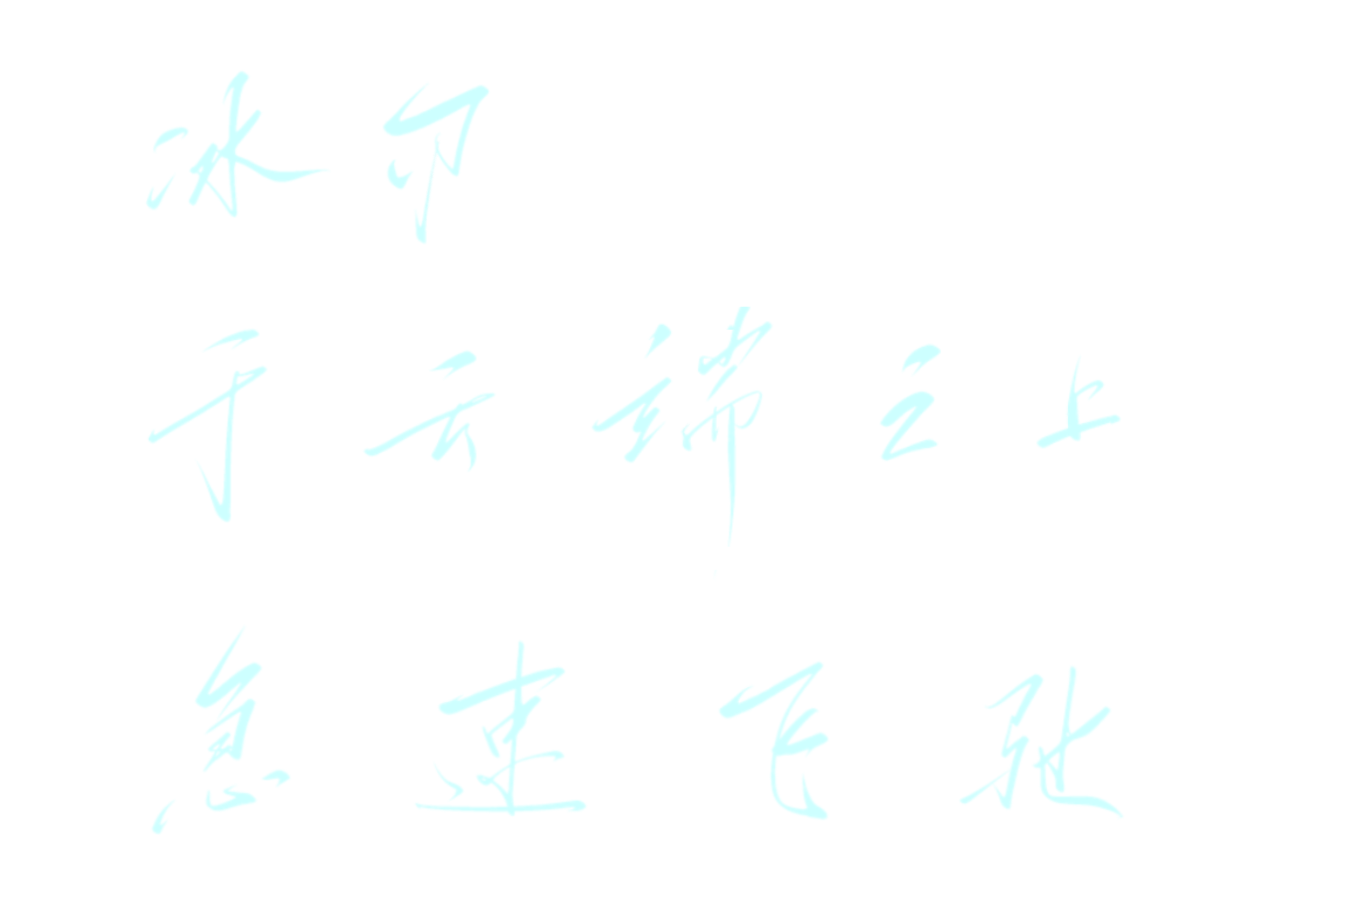 冰印
于云端之上
急速飞驰